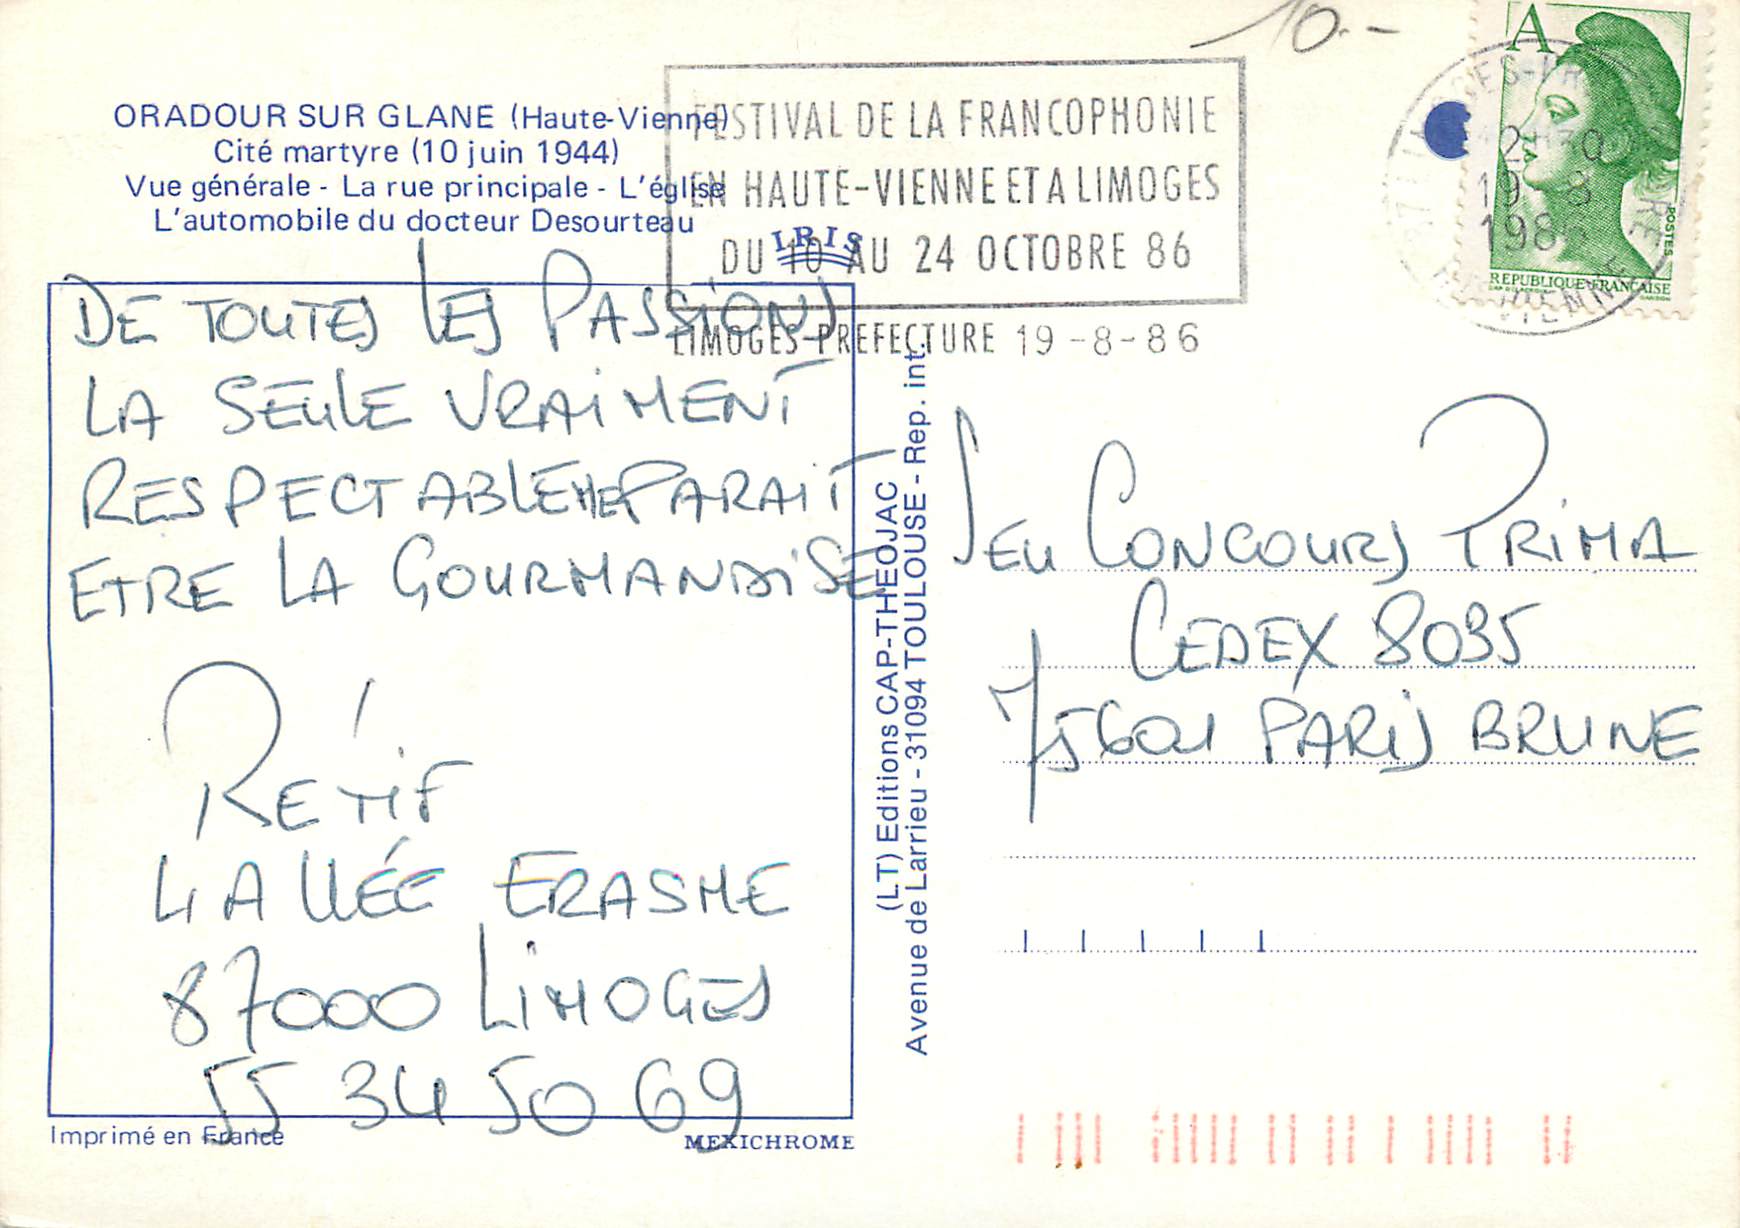 10.-
A
ORADOUR SUR GLANE (Haute-Vienne)
Cité martyre (10 juin 1944)
Vue générale - La rue principale - L'église
L'automobile du docteur Desourteau
FESTIVAL DE LA FRANCOPHONIE
EN HAUTE-VIENNE ET A LIMOGES
DU 10 AU 24 OCTOBRE 86
LIMOGES-PREFECTURE 19-8-86
IRIS
19-8
1986
POSTES
REPUBLIQUE FRANCAISE
DE TOUTES LES PASSIONS
LA SEULE VRAIMENT
RESPECTABLE ME PARAIT
ETRE LA GOURMANDISE
RÉTIF
4 ALLÉE ERASME
87000 LIMOGES
55 34 50 69
(LT) Editions CAP-THEOJAC
Avenue de Larrieu - 31094 TOULOUSE - Rep. int.
JEU CONCOURS PRIMA
CEDEX 8035
75601 PARIS BRUNE
Imprimé en France
MEXICHROME